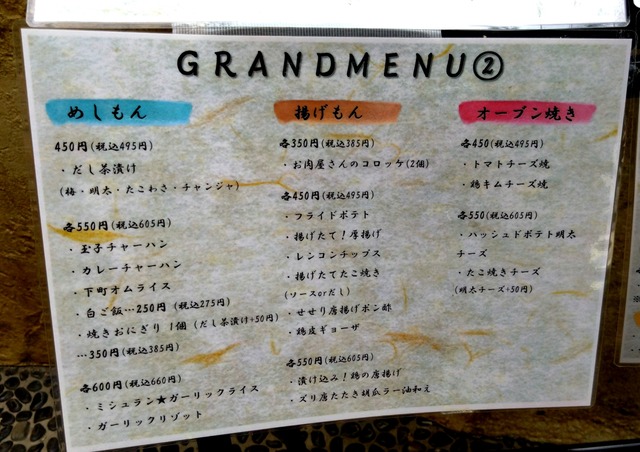 GRANDMENU②
めしもん
450円(税込495円)
・だし茶漬け
(梅・明太・たこわさ・チャンジャ)
各550円(税込605円)
・玉子チャーハン
・カレーチャーハン
・下町オムライス
・白ご飯…250円(税込275円)
・焼きおにぎり 1個(だし茶漬け+50円)
…350円(税込385円)
各600円(税込660円)
・ミシュラン★ガーリックライス
・ガーリックリゾット
揚げもん
各350円(税込385円)
・お肉屋さんのコロッケ(2個)
各450円(税込495円)
・フライドポテト
・揚げたて!厚揚げ
・レンコンチップス
・揚げたてたこ焼き
(ソースorだし)
・せせり唐揚げポン酢
・鶏皮ギョーザ
各550円(税込605円)
・漬け込み!鶏の唐揚げ
・ズリ唐たたき胡瓜ラー油和え
オーブン焼き
各450(税込495円)
・トマトチーズ焼
・鶏キムチーズ焼
各550(税込605円)
・ハッシュドポテト明太
チーズ
・たこ焼きチーズ
(明太チーズ+50円)